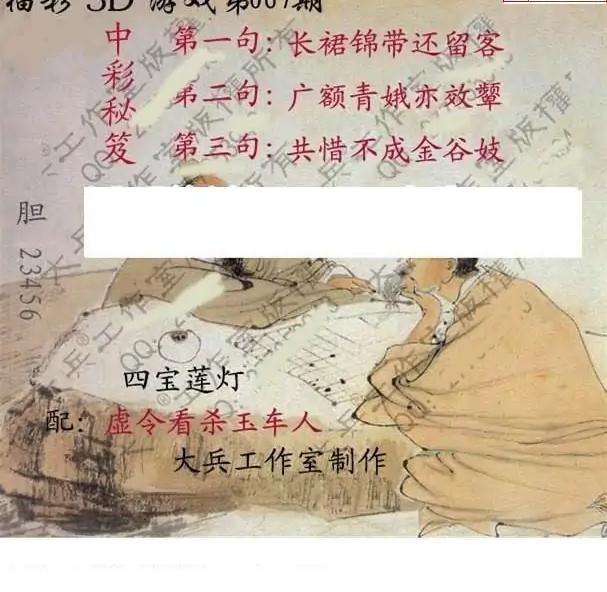 福彩 3D 游戏第001期
中彩秘笈
第一句：长裙锦带还留客
第二句：广额青娥亦效颦
第三句：共惜不成金谷妓
胆 23456
四宝莲灯
配：虚令看杀玉车人
大兵工作室制作
大兵工作室版權所有